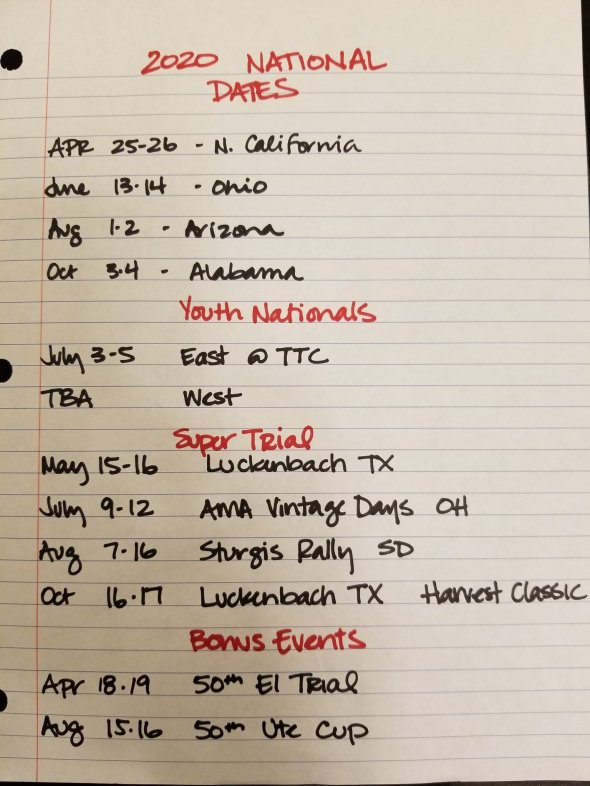 2020 NATIONAL
DATES
APR 25-26 - N. California
June 13-14 - Ohio
Aug 1-2 - Arizona
Oct 3-4 - Alabama
Youth Nationals
July 3-5 East @ TTC
TBA West
Super Trial
May 15-16 Luckenbach TX
July 9-12 AMA Vintage Days OH
Aug 7-16 Sturgis Rally SD
Oct 16-17 Luckenbach TX Harvest Classic
Bonus Events
Apr 18-19 50th El Trial
Aug 15-16 50th Ute Cup